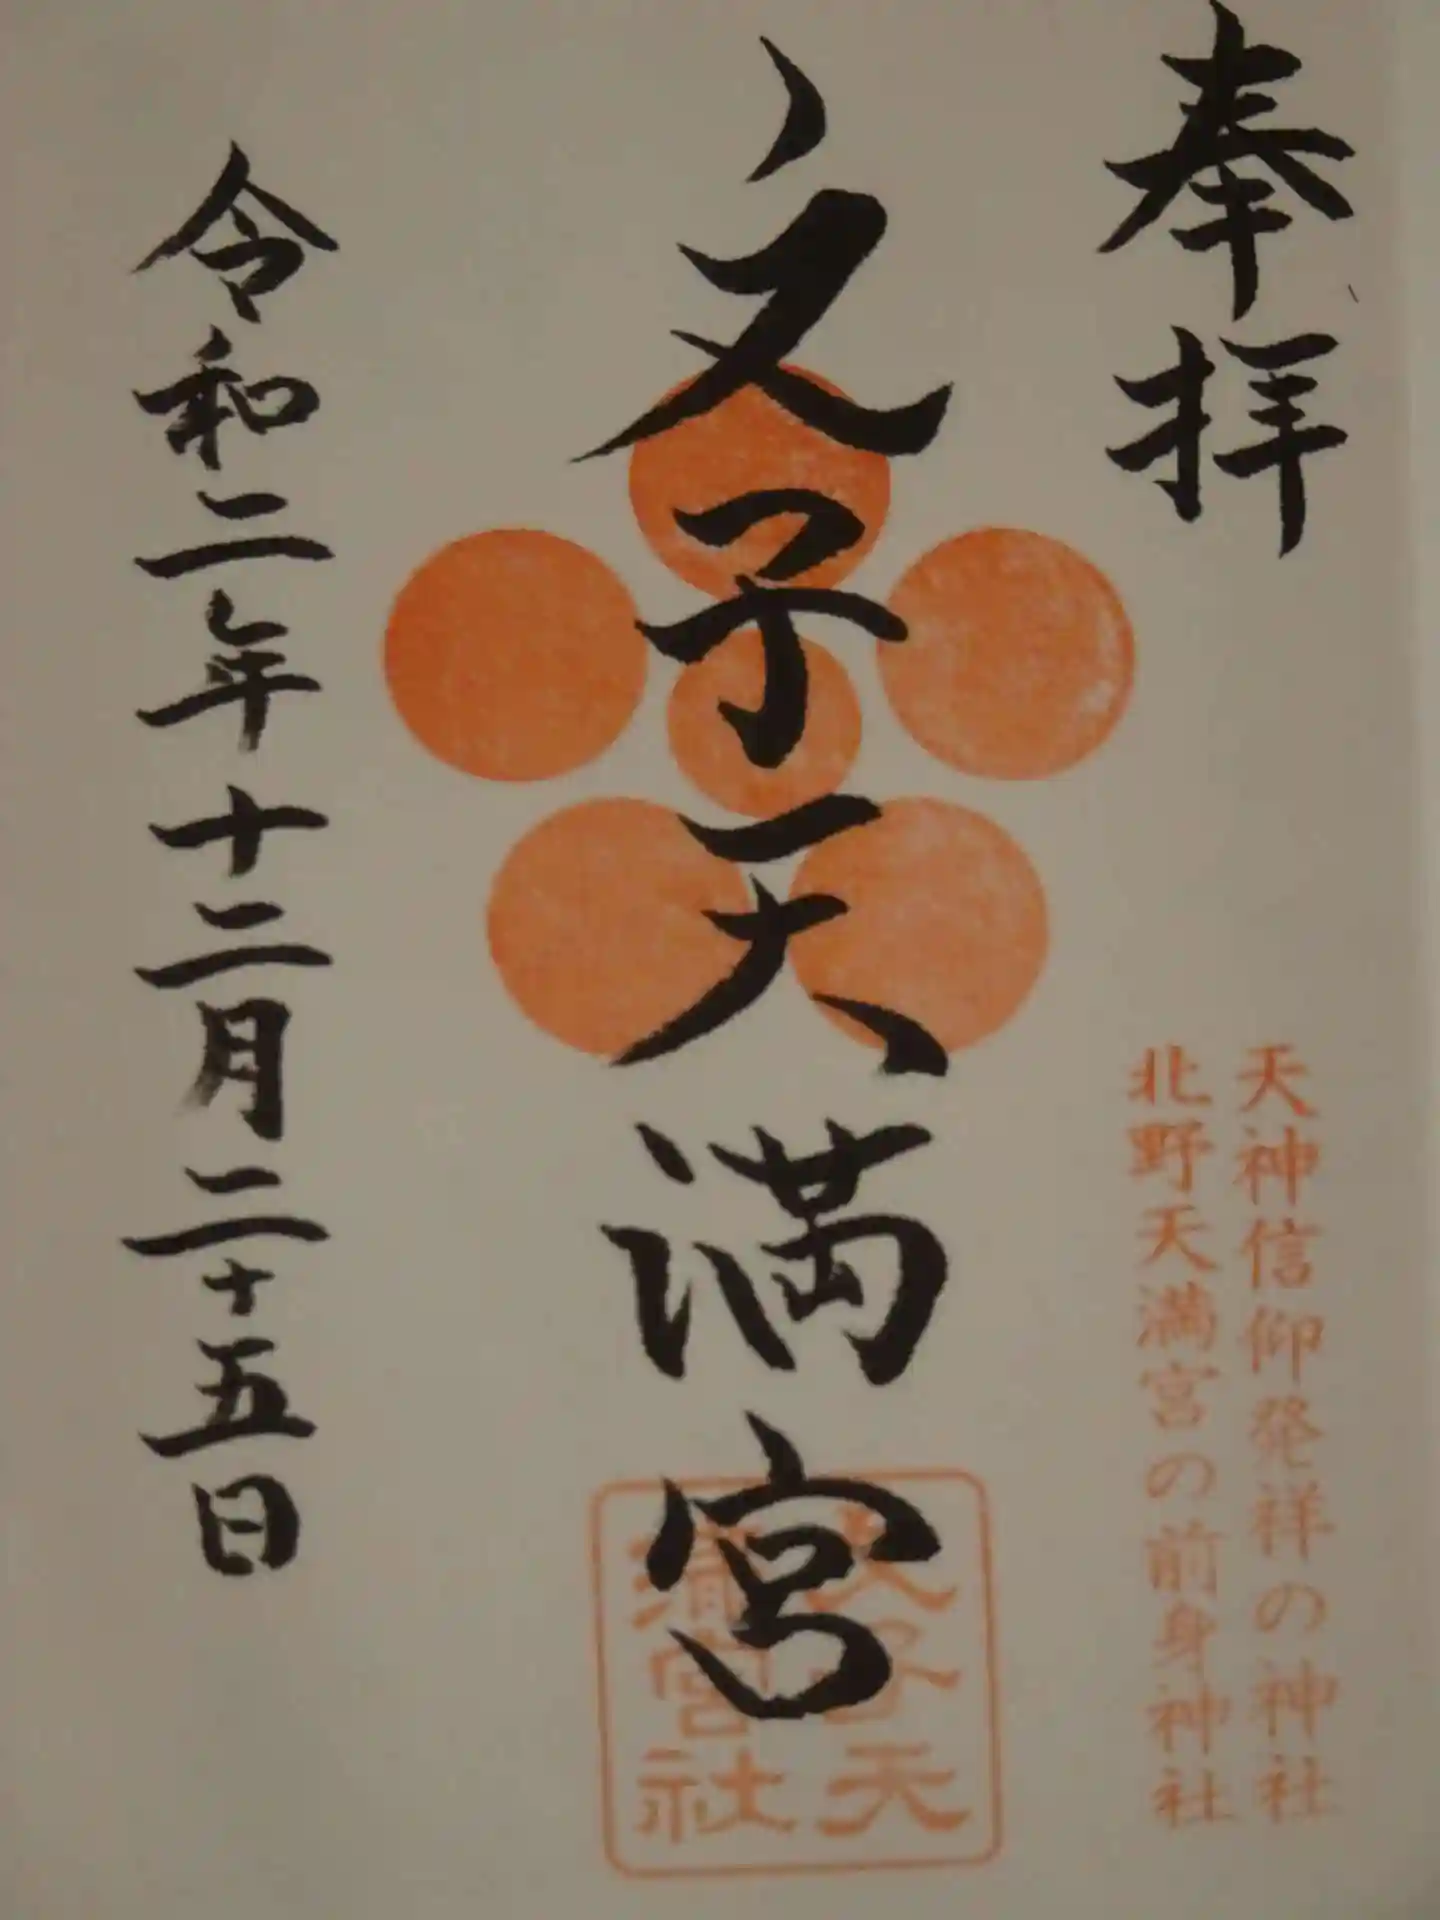 奉拝
天神信仰発祥の神社
北野天満宮の前身神社
文子天満宮
文子天
満宮社
令和二年十二月二十五日